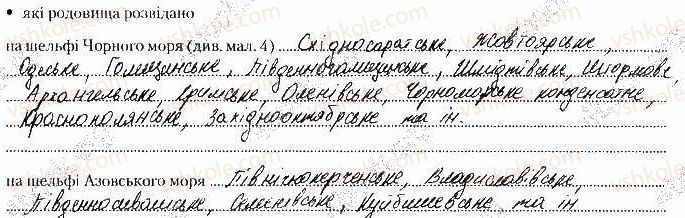 • які родовища розвідано
на шельфі Чорного моря (див. мал. 4) Східносаратське, Жовтоярське,
Одеське, Голицинське, Південноголицинське, Шмідтівське, Штормове,
Архангельське, Кримське, Оленівське, Чорноморське конденсатне,
Краснополянське, Західнооктябрське та ін.
на шельфі Азовського моря Північнокерченське, Владиславівське,
Південносиваське, Семенівське, Куйбишевське та ін.